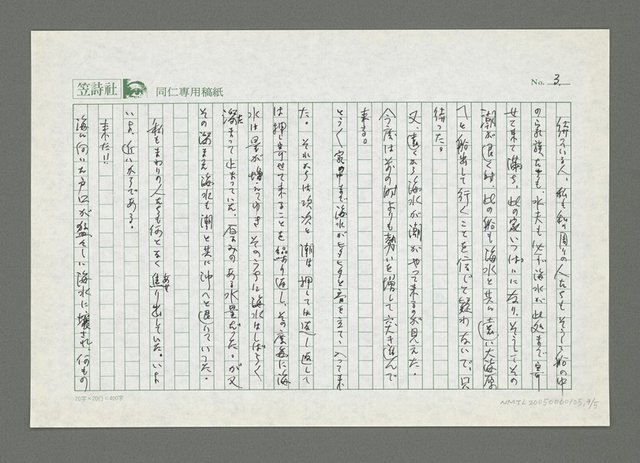 No. 3
笠詩社
同仁専用稿紙
待っている人。私も私の周りの人たちもそうし船の中
の家族たちも、水夫も必ず海水が此処まで
せて来て満ち、此の家いっぱいになり、そうしてその
潮が良くば、此の船も海水と共に遠い大海原
へと船出して行くことを信じて疑わないで。只
待った。
又、遠くから海水が潮がやって来るのが見えた。
今度は前の時よりも勢いを増して突き進んで
来る。
とうとう家の中まで海水がヒタヒタと音を立てて入って来
た。それからは次々と潮は押しては返し返して
は押し寄せて来ることを繰り返し、その度毎に海
水は量が増えてゆき その うちに海水はしばらく
溜まって止まっていた。厚みのある水量だった。が又
その溜まえ海水も潮と共に沖へと退いていった。
私もまわりの人たちも何となく焦り出していた。いよ
いよ、近いからである。
来た!!
海に向いた戸口が盛んに海水に壊され、何もの
20字×20行=400字
NMTL20050060105,4/5